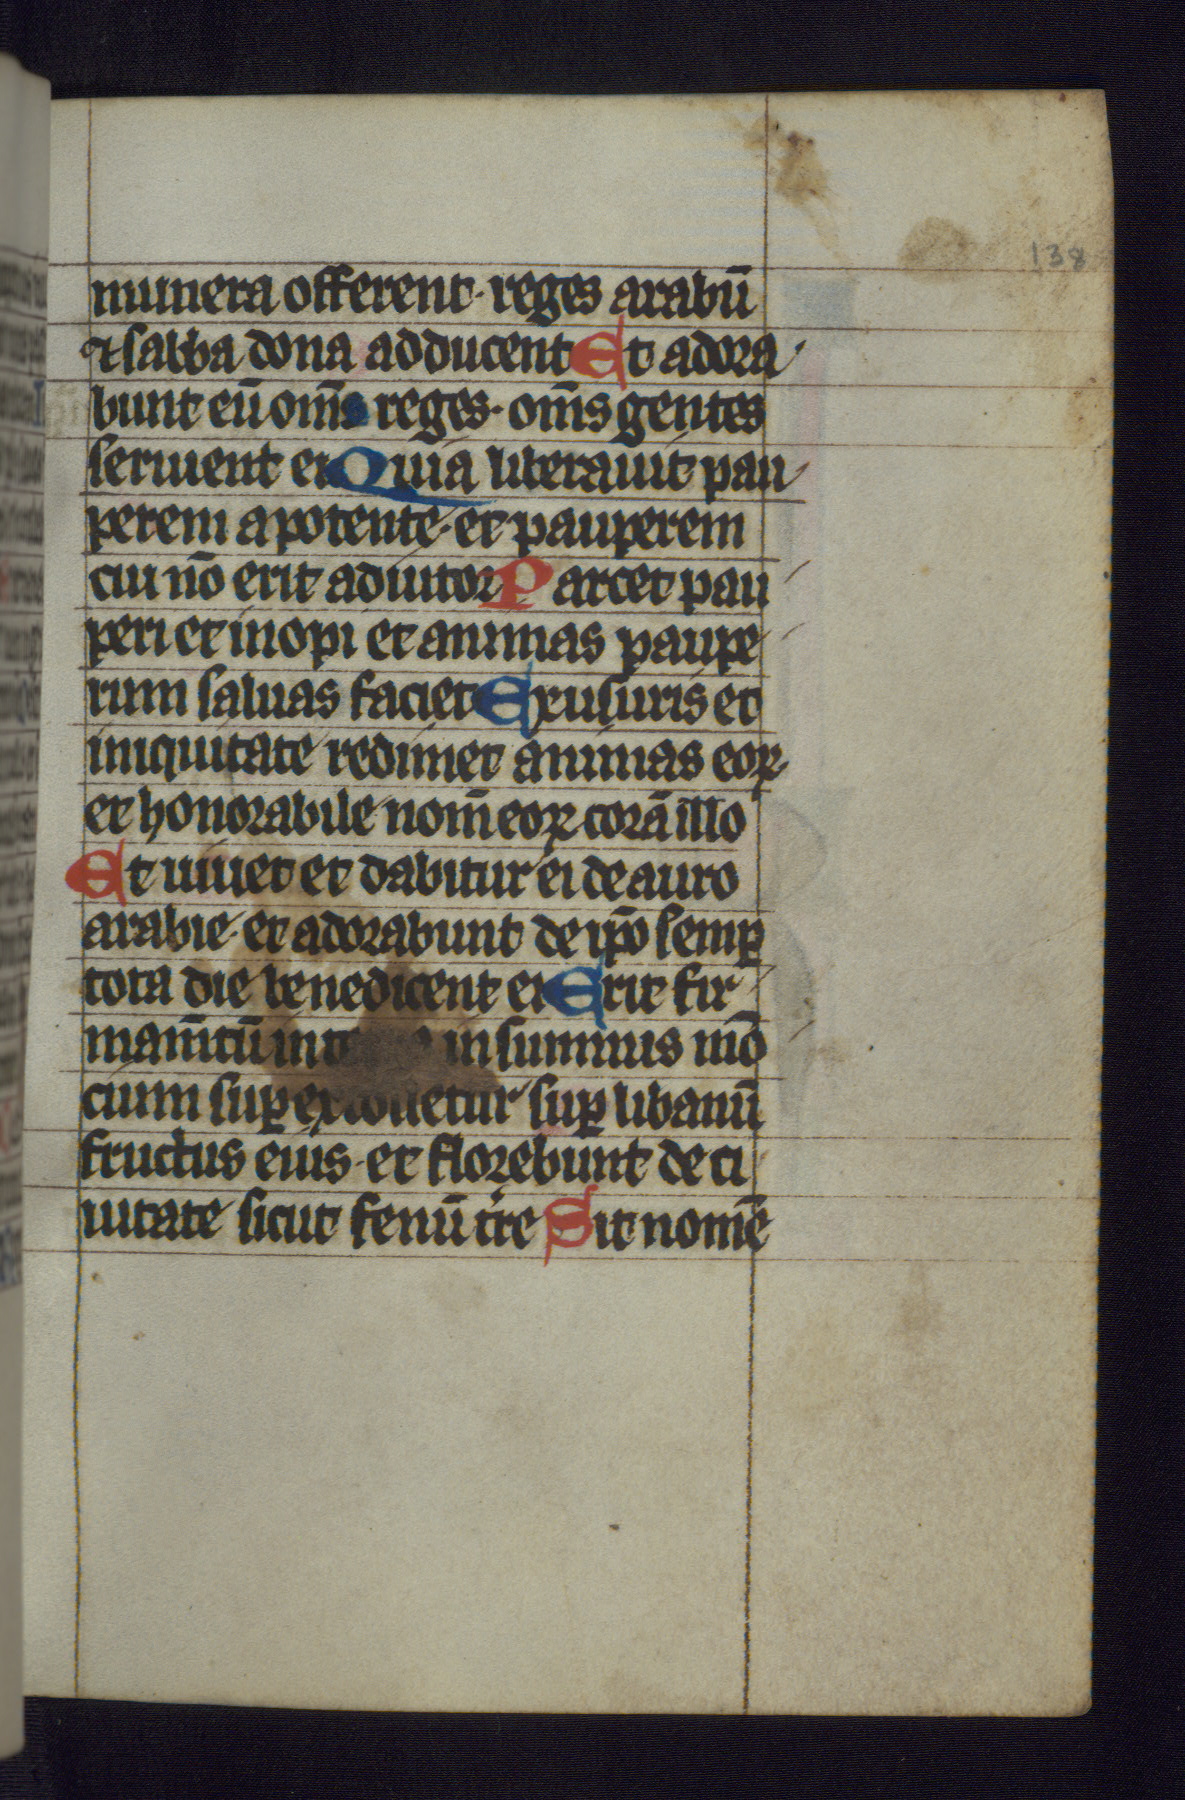 138
munera offerent. reges arabū
⁊ sabba dona adducent Et adora
bunt eū om̄s reges. om̄s gentes
seruient ei Quia liberauit pau
perem a potente. et pauperem
cui nō erit adiutor Parcet pau
peri et inopi et animas paupe
rum saluas faciet Ex usuris et
iniquitate redimet animas eoꝝ.
et honorabile nom̄ eoꝝ corā illo
Et uiuet et dabitur ei de auro
arabie. et adorabunt de ip̄o semꝑ
tota die benedicent ei Erit fir
mam̄tū in in summis mō
cium suꝑextolletur suꝑ libanū
fructus eius. et florebunt de ci
uitate sicut fenū tr̄e Sit nomē